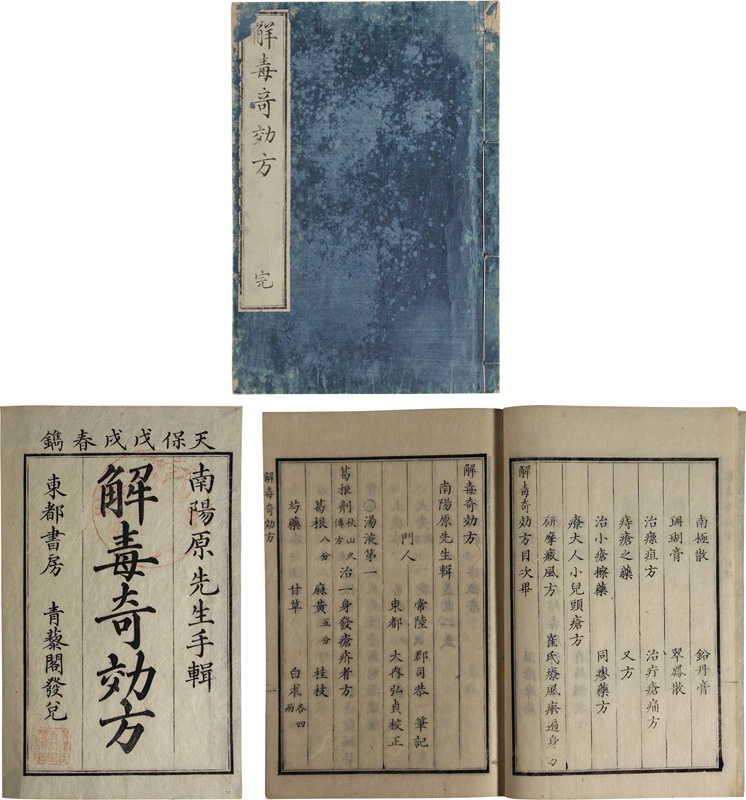 解毒奇効方 完
天保戊戌春鐫
南陽原先生手輯
解毒奇効方
東都書房 青藜閣發兌
南極散 鉛丹膏
珊瑚膏 翠羽散
治瘭疽方 治疔瘡痛方
痔瘡之藥 又方
治小瘡擦藥 同瘳藥方
療大人小兒頭瘡方
研摩癜風方 崔氏療風瘮遍身方
解毒奇効方目次畢
解毒奇効方
南陽原先生輯
門人 常陸 郡司恭 筆記
東都 大冉弘貞 校正
湯液第一
葛根劑 秋山久傳方 治一身發瘡疥者方
葛根 八分 麻黄 五分 桂枝
芍藥 甘草 白朮 各四兩
解毒奇効方 一